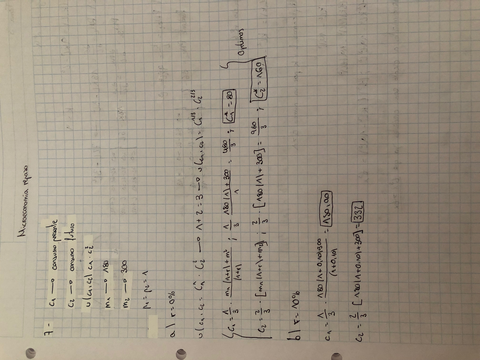 Microeconomía repaso
7-
C₁ → consumo presente
C₂ → consumo futuro
u(c₁,c₂) c₁·c₂²
m₁ → 180
m₂ → 300
p₁ = p₂ = 1
a) r=0%
u(c₁,c₂ = c₁¹·c₂² → 1+2=3 → u(c₁,c₂) = c₁^{1/3}·c₂^{2/3}
C₁ = 1/3 · m₁(1+r)+m₂/(1+r) ; 1/3 · 180(1)+300/1 = 480/3 ; C₁* = 80
C₂ = 2/3 · [m₁(1+r)+m₂] ; 2/3 · [180(1)+300] = 960/3 ; C₂* = 160
Óptimos
b) r=10%
C₁ = 1/3 · 180(1+0,10)+300/(1+0,10)
C₂ = 2/3 [180(1+0,10)+300] = 332